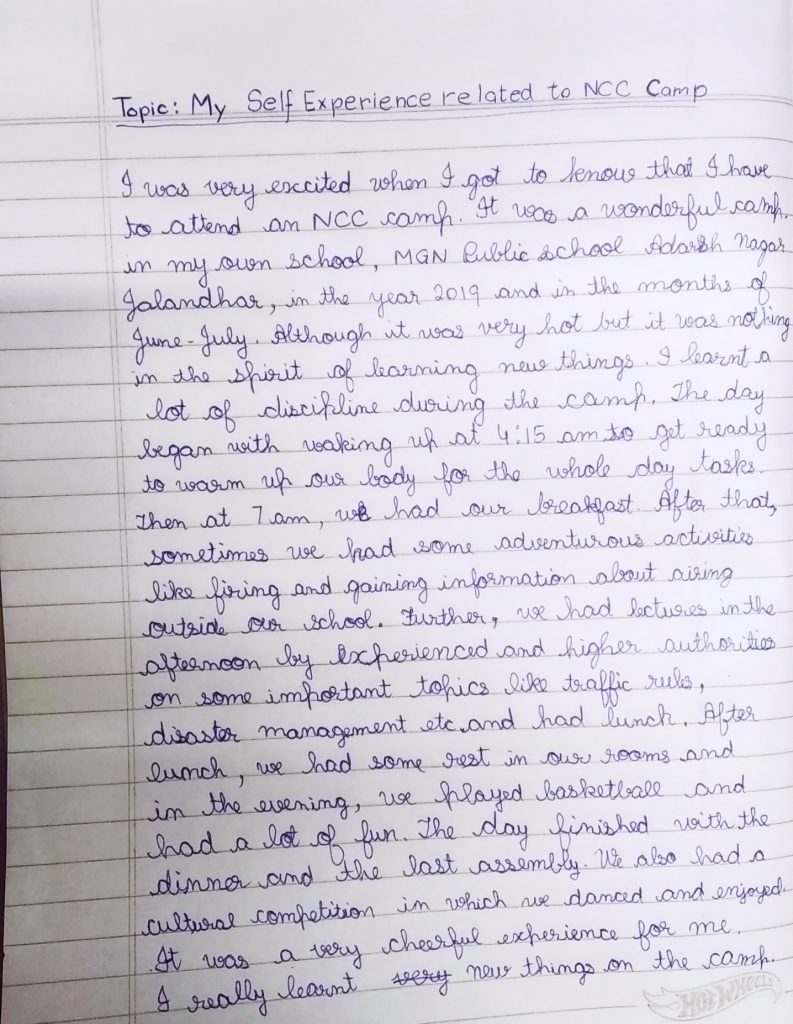 Topic: My Self Experience related to NCC Camp
I was very excited when I got to know that I have
to attend an NCC camp. It was a wonderful camp.
in my own school, MGN Public school Adarsh Nagar
Jalandhar, in the year 2019 and in the months of
June-July. Although it was very hot but it was nothing
in the spirit of learning new things. I learnt a
lot of discipline during the camp. The day
began with waking up at 4:15 am to get ready
to warm up our body for the whole day tasks.
Then at 7 am, we had our breakfast. After that,
sometimes we had some adventurous activities
like firing and gaining information about airing
outside our school. Further, we had lectures in the
afternoon by experienced and higher authorities
on some important topics like traffic rules,
disaster management etc. and had lunch. After
lunch, we had some rest in our rooms and
in the evening, we played basketball and
had a lot of fun. The day finished with the
dinner and the last assembly. We also had a
cultural competition in which we danced and enjoyed.
It was a very cheerful experience for me.
I really learnt very new things on the camp.
HOT WHEELS